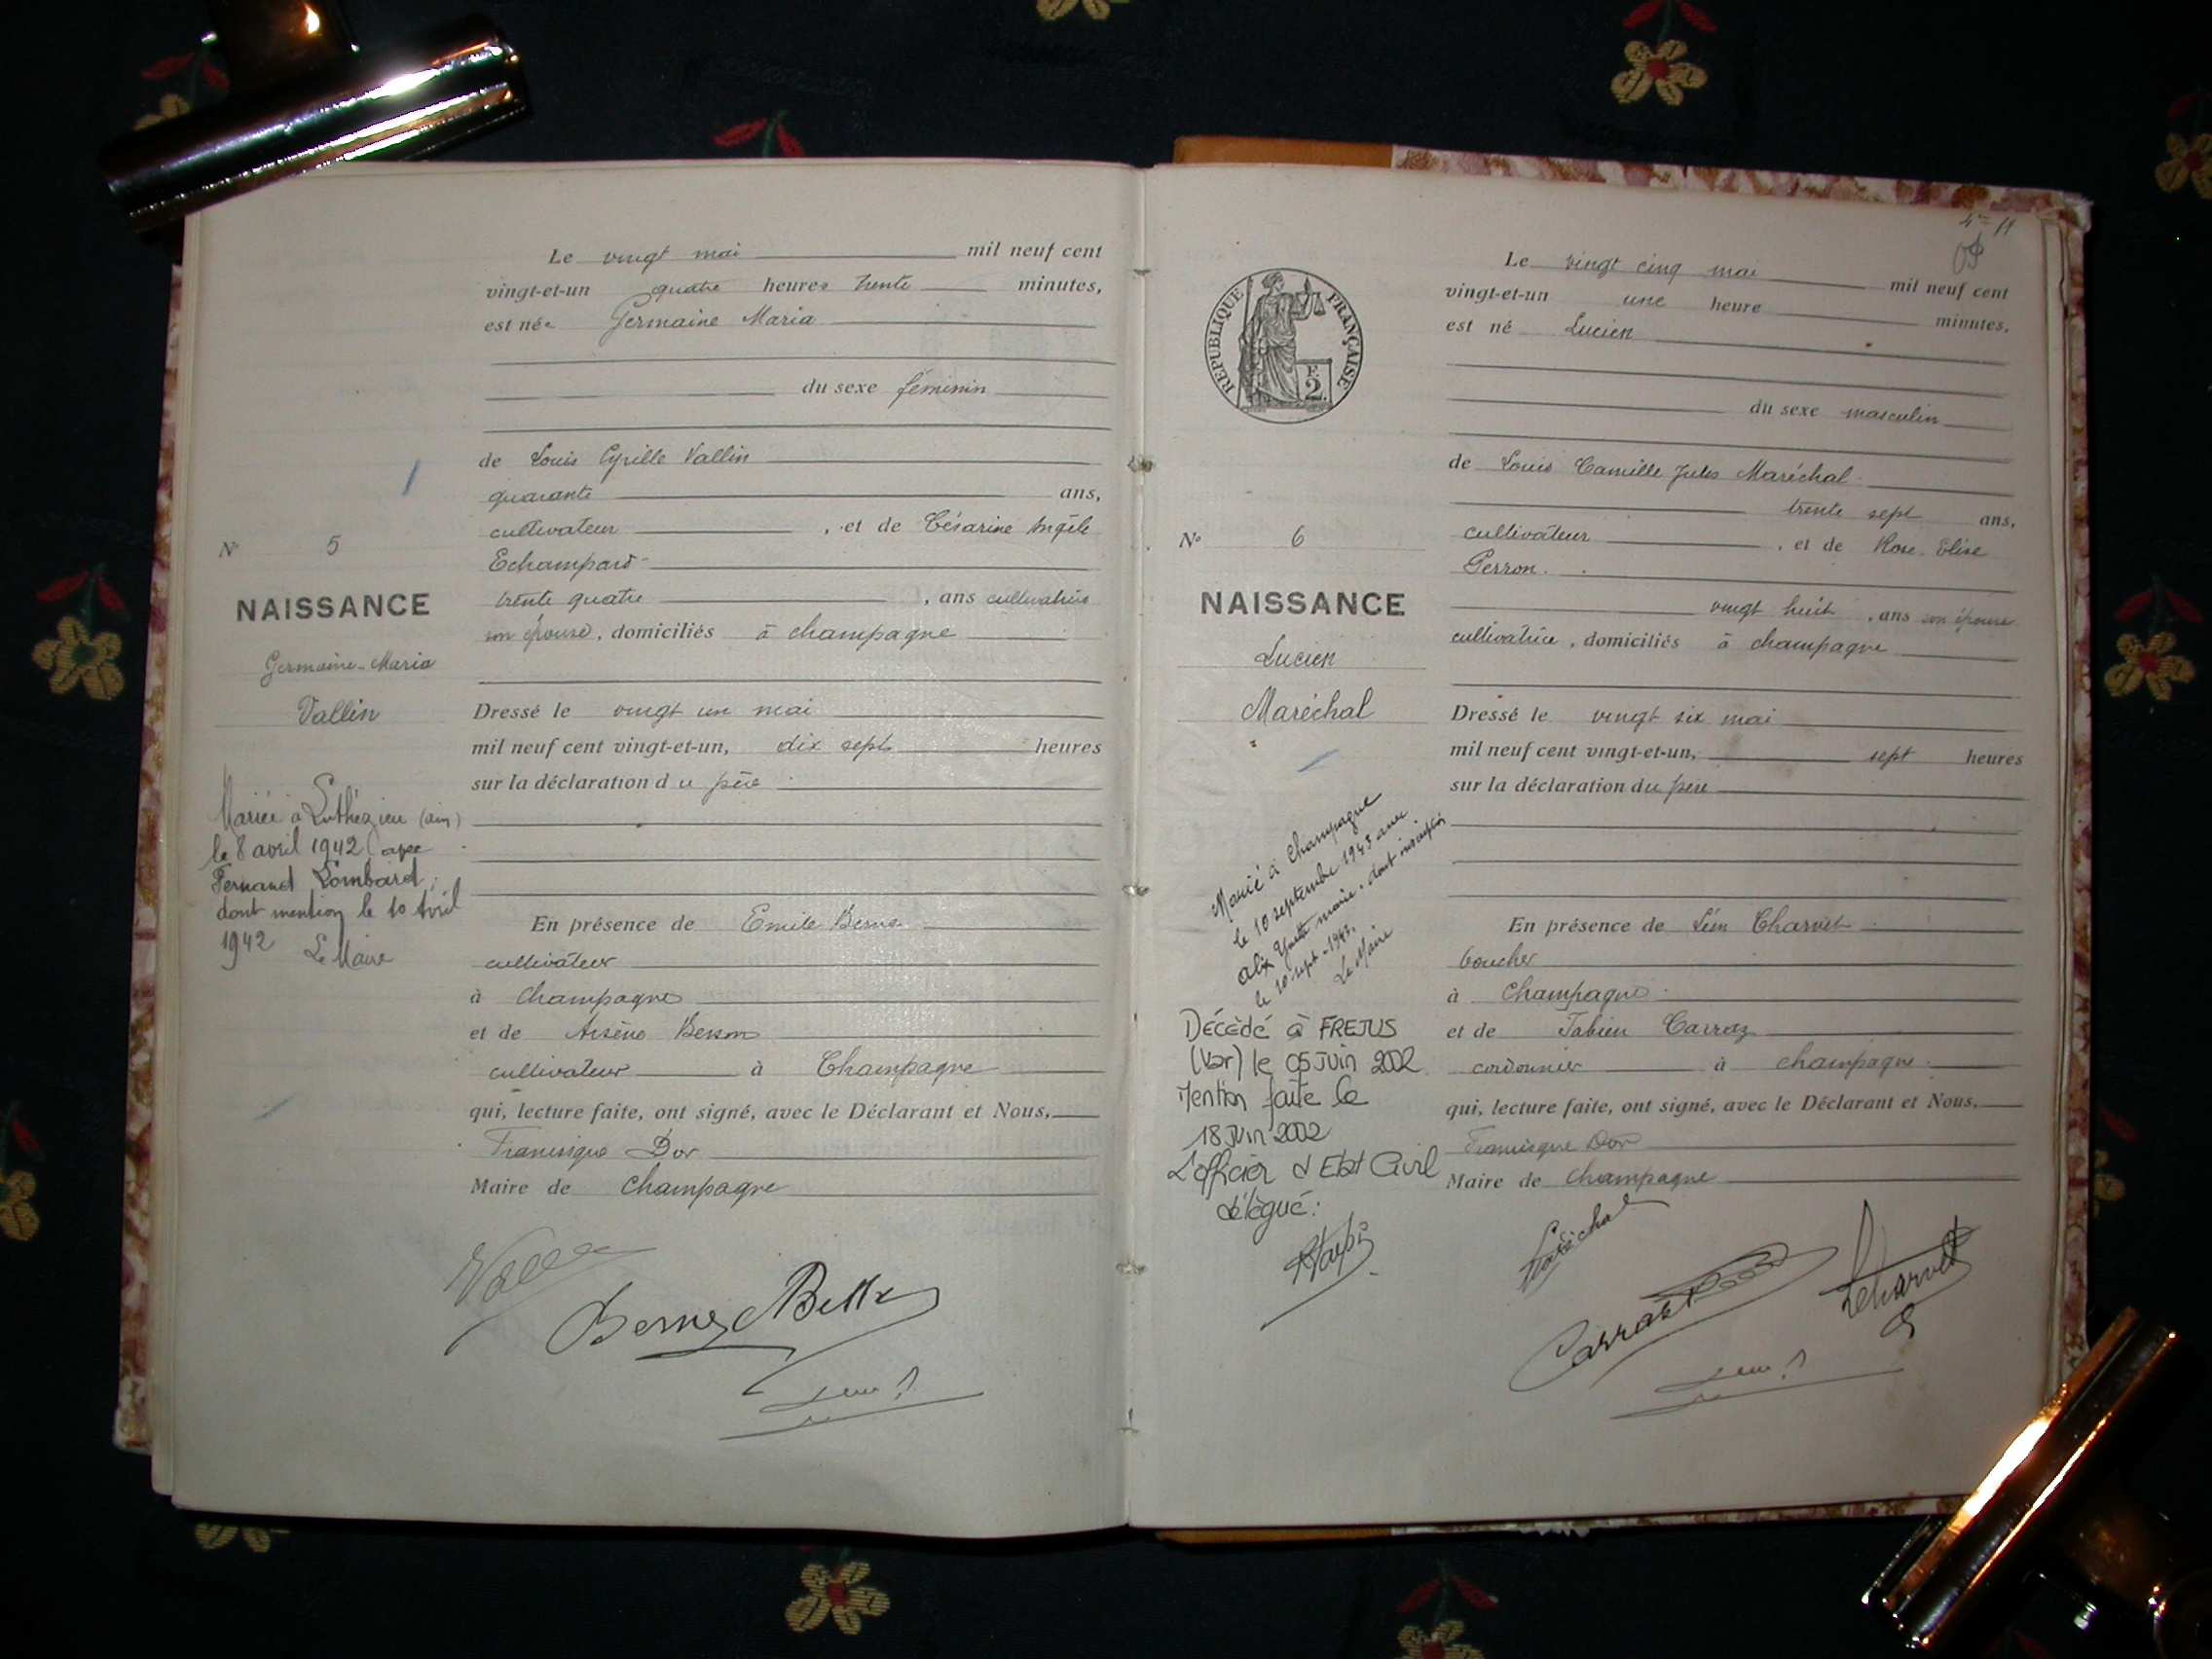 Le vingt mai mil neuf cent
vingt-et-un quatre heures trente minutes,
est née Germaine Maria
du sexe féminin
de Louis Cyrille Vallin
quarante ans,
cultivateur , et de Césarine Angèle
Echampard
trente quatre , ans cultivatrice
son épouse, domiciliés à champagne
N° 5
NAISSANCE
Germaine-Maria
Vallin
Dressé le vingt un mai
mil neuf cent vingt-et-un, dix sept heures
sur la déclaration du père
Mariée à Luthézieu (ain)
le 8 avril 1942 avec
Fernand Lombard,
dont mention le 10 Avril
1942 Le Maire
En présence de Emile Berne
cultivateur
à Champagne
et de Arsène
cultivateur à Champagne
qui, lecture faite, ont signé, avec le Déclarant et Nous,
Francisque Dor
Maire de Champagne
Berne
RÉPUBLIQUE FRANÇAISE
F.
2.
Le vingt cinq mai mil neuf cent
vingt-et-un une heure minutes,
est né Lucien
du sexe masculin
de Louis Camille Jules Maréchal
trente sept ans,
cultivateur , et de Rose Elise
Perron.
vingt huit , ans son épouse
cultivatrice, domiciliés à champagne
N° 6
NAISSANCE
Lucien
Maréchal
Dressé le vingt six mai
mil neuf cent vingt-et-un, sept heures
sur la déclaration du père
Marié à Champagne
le 10 septembre 1943 avec
Alix marie, dont inscription
le 10 sept. 1943.
Le Maire
Décédé à FREJUS
(Var) le 05 Juin 2002
Mention faite le
18 Juin 2002
L'officier d'Etat Civil
délégué:
En présence de Léon Charvet
boucher
à Champagne
et de Fabien Carraz
cordonnier à champagne
qui, lecture faite, ont signé, avec le Déclarant et Nous,
Francisque Dor
Maire de Champagne
Maréchal
Carraz
Charvet